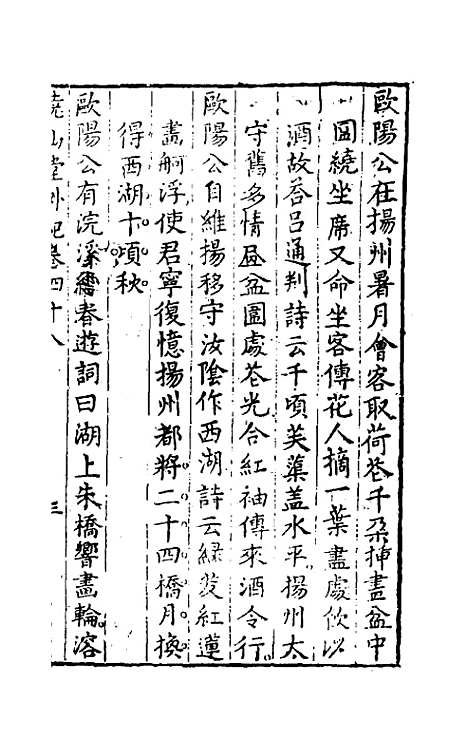 歐陽公在揚州暑月會客取荷花千朶揷畫盆中
圍繞坐席又命坐客傳花人摘一葉盡處飲以
酒故荅呂通判詩云千頃芙蕖盖水平揚州太
守舊多情畫盆圍處花光合紅袖傳來酒令行
歐陽公自維揚移守汝陰作西湖詩云綠芰紅蓮
畫舸浮使君寧復憶揚州都將二十四橋月換
得西湖十頃秋
歐陽公有浣溪春遊詞曰湖上朱橋響畫輪溶
堯山堂外紀卷四十八 三